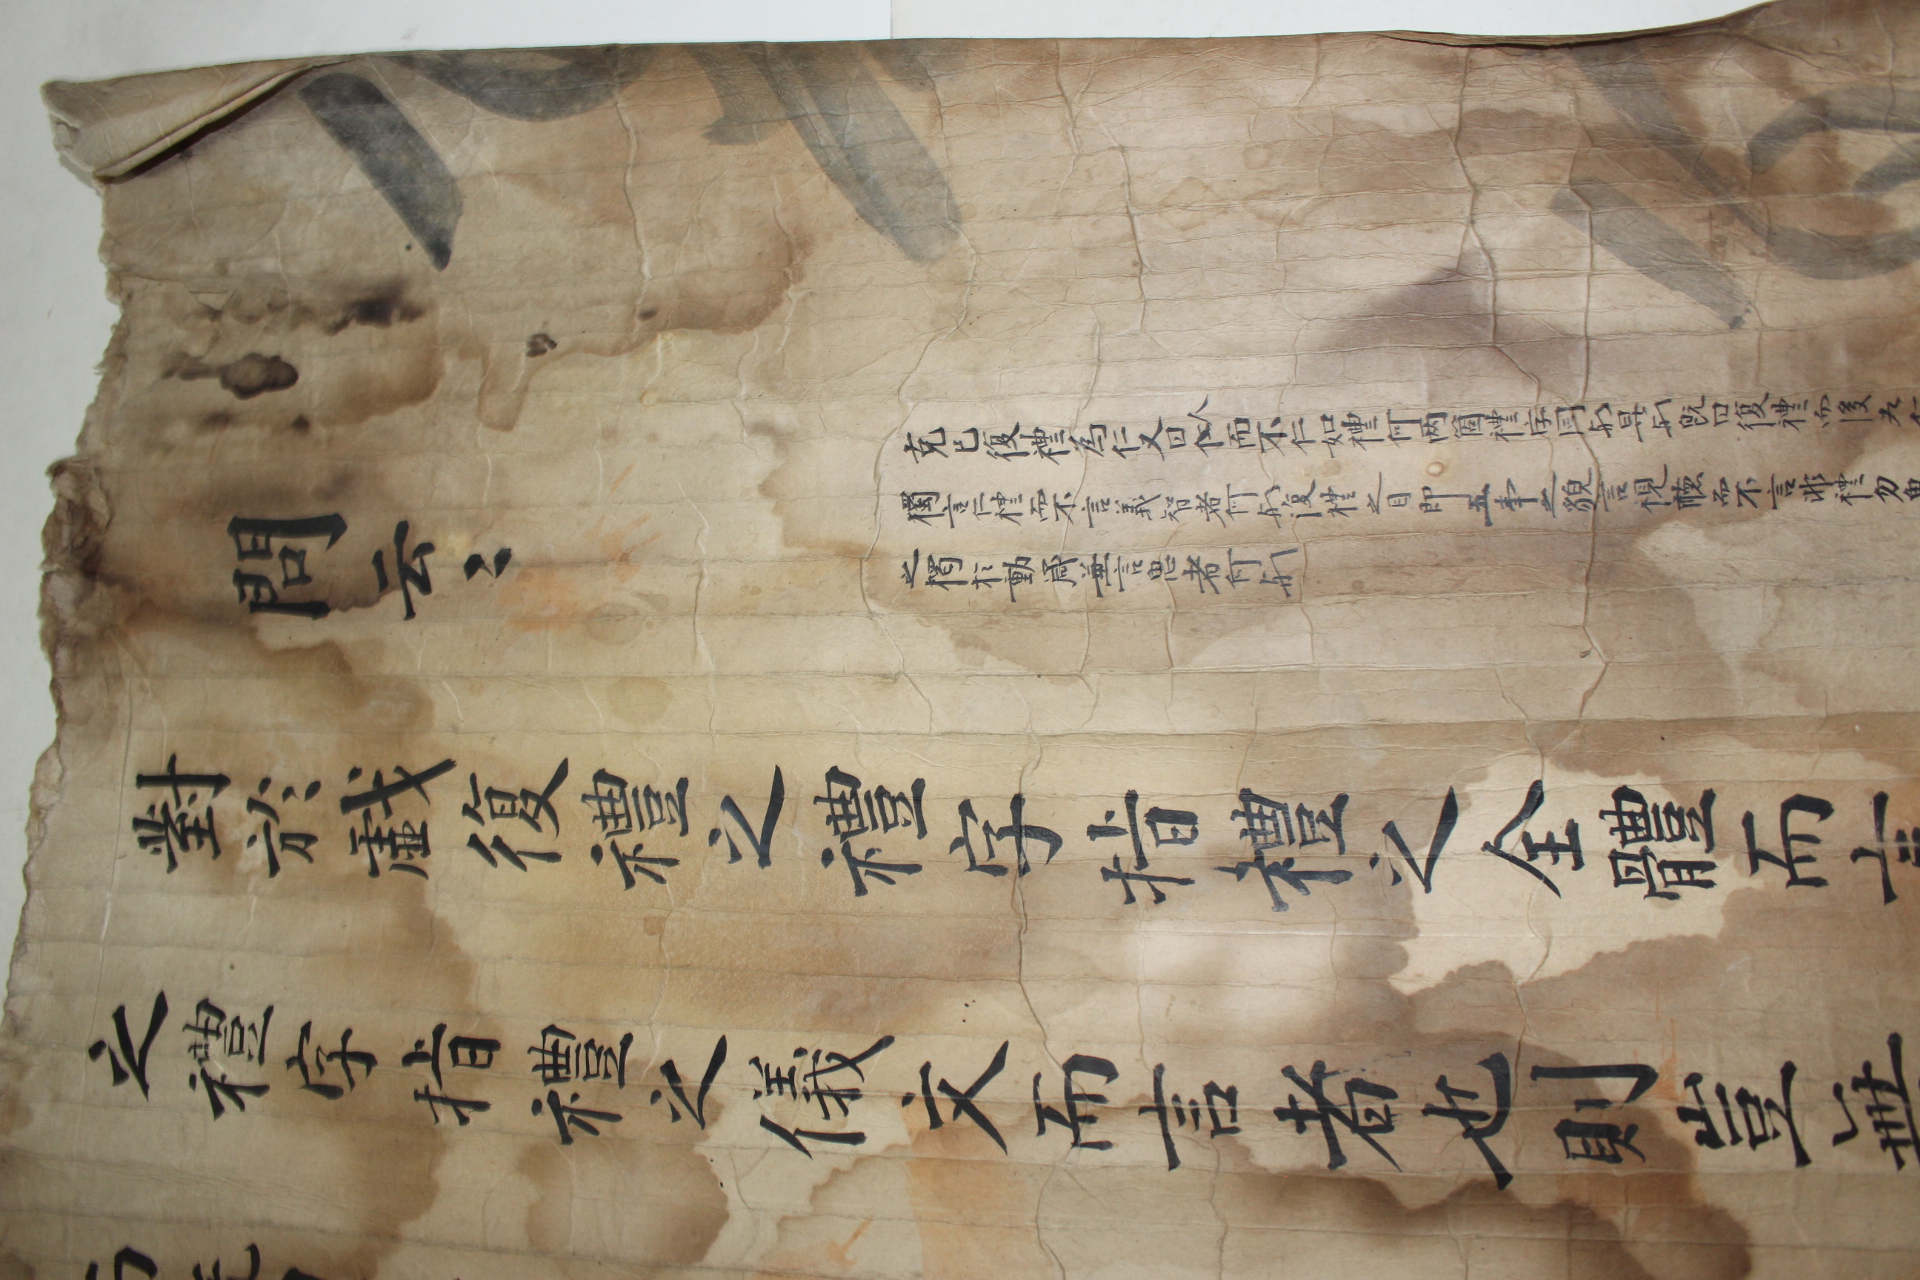 克己復禮為仁又曰人而不仁如禮何两箇禮字同歟異歟旣曰復禮而後為仁
獨言仁禮而不言義智者何歟復禮之目即五事之貌言視聽而不言非禮勿思
之獨於動箴兼言思者何歟
問云〻
對於戱復禮之禮字指禮之全體而言
之禮字指禮之儀文而言者也則豈無